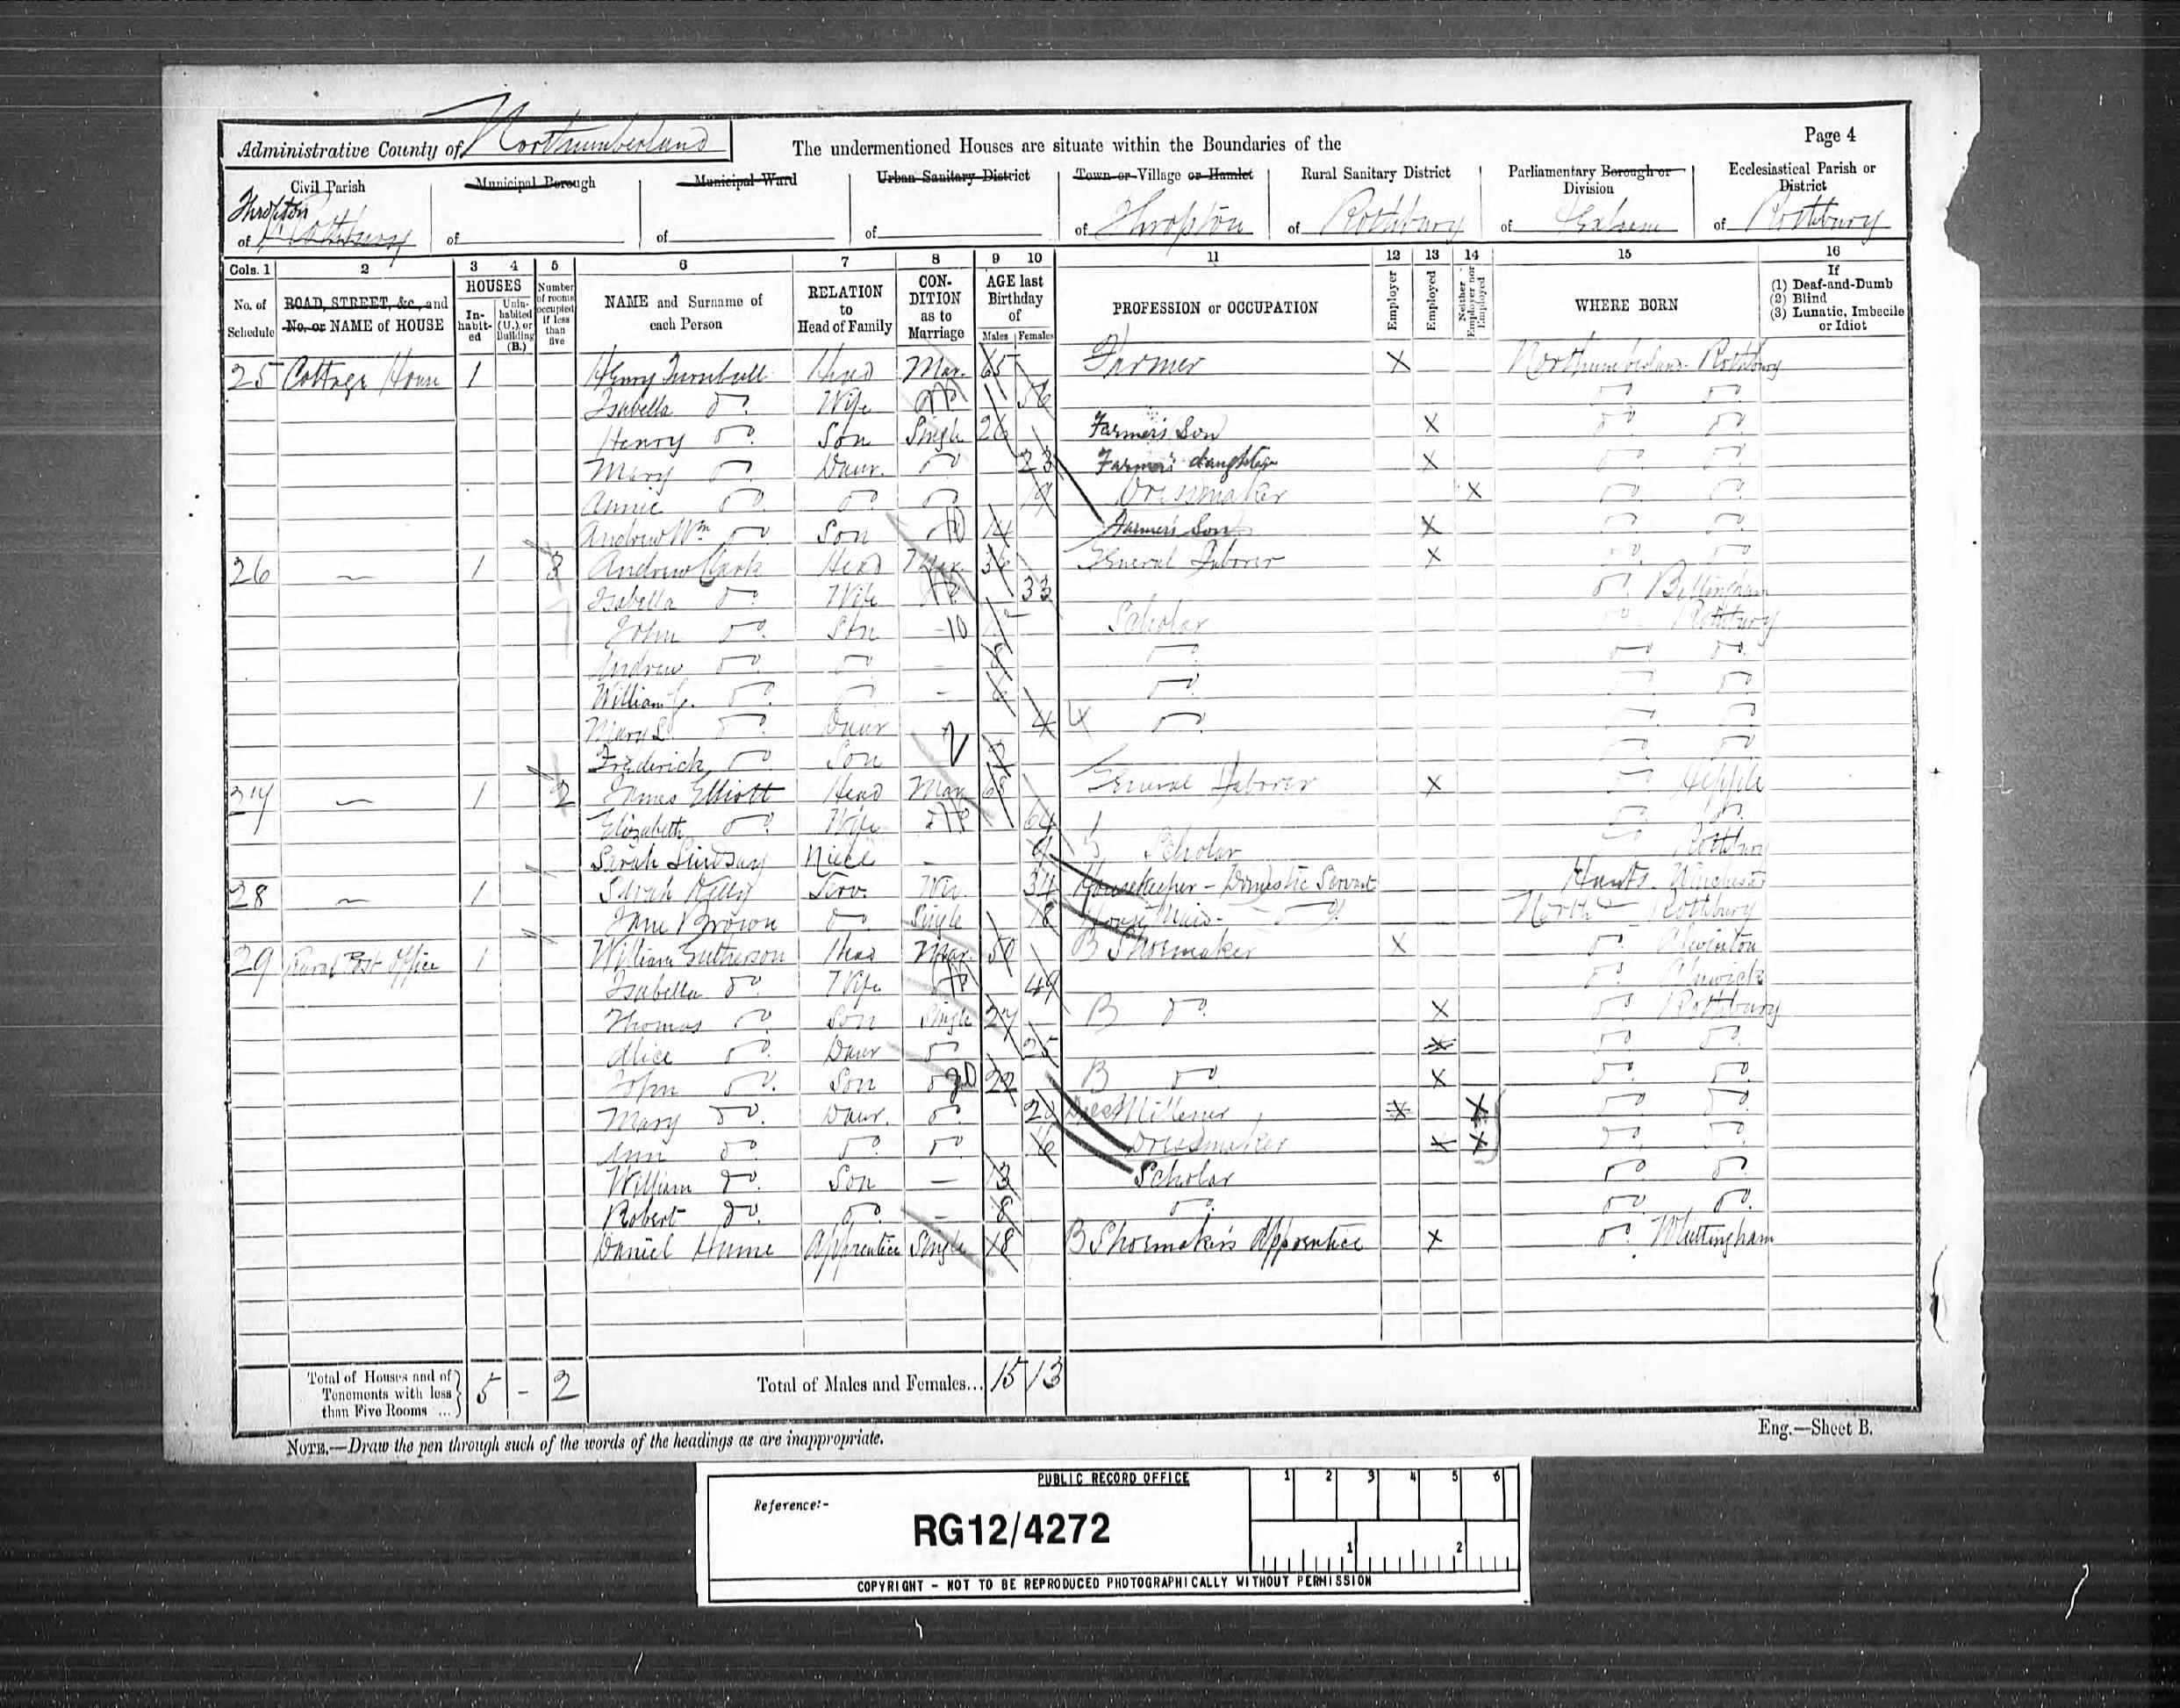 Page 4
Administrative County of Northumberland
The undermentioned Houses are situate within the Boundaries of the
Civil Parish
Municipal Borough
Municipal Ward
Urban Sanitary District
Town or Village or Hamlet
Rural Sanitary District
Parliamentary Borough or Division
Ecclesiastical Parish or District
Thropton
of Rothbury of of of of Thropton of Rothbury of Hexham of Rothbury
Cols. 1 2 3 4 5 6 7 8 9 10 11 12 13 14 15 16
No. of Schedule
ROAD, STREET, &c., and No. or NAME of HOUSE
HOUSES
In-habit-ed
Unin-habited (U.), or Building (B.)
Number of rooms occupied if less than five
NAME and Surname of each Person
RELATION to Head of Family
CON-DITION as to Marriage
AGE last Birthday of
Males Females
PROFESSION or OCCUPATION
Employer
Employed
Neither Employer nor Employed
WHERE BORN
If
(1) Deaf-and-Dumb
(2) Blind
(3) Lunatic, Imbecile or Idiot
25 Cottage House 1 Henry Turnbull Head Mar. 65 Farmer X Northumberland Rothbury
Isabella do. Wife do 56 do do
Henry do. Son Single 26 Farmer's Son X do do
Mary do. Daur. do 23 Farmer's daughter X do do
Annie do. do do 19 Dressmaker X do do
Andrew Wm do Son do 14 Farmer's Son X do do
26 — 1 3 Andrew Clark Head Mar. 36 General Laborer X do do
Isabella do. Wife do 33 do Bellingham
John do. Son - 10 Scholar do Rothbury
Andrew do. do - 8 do. do do.
William G. do. do - 6 do. do do.
Mary do Daur 4 do. do do
Frederick do. Son 2 do do
27 — 1 2 James Elliott Head Mar 68 General Laborer X do Hepple
Elizabeth do. Wife do 64 do do.
Sarah Lindsay Niece - 9 Scholar do Rothbury
28 — 1 Sarah Kelly Serv. 34 Housekeeper - Domestic Servant Hants. Winchester
Jane Brown do Single 18 House Maid - do North Rothbury
29 Rural Post Office 1 William Head Mar. 50 B Shoemaker X do Alwinton
Isabella do. Wife do 49 do Alnwick
Thomas do Son Single 27 B do. X do Rothbury
Alice do. Daur do 25 X do do.
John do. Son do 22 B do X do. do.
Mary do Daur. do. 20 Milliner X X do do
Ann do. do do 16 Dressmaker X X do. do.
William do. Son — 13 Scholar do do.
Robert do. do. - 8 do. do. do.
Daniel Hume Apprentice Single 18 B Shoemaker's Apprentice X do. Whittingham
Total of Houses and of Tenements with less than Five Rooms ... 5 - 2
Total of Males and Females... 15 13
NOTE.—Draw the pen through such of the words of the headings as are inappropriate.
Eng.—Sheet B.
PUBLIC RECORD OFFICE
Reference:-
RG12/4272
1 2 3 4 5 6
1 2
COPYRIGHT - NOT TO BE REPRODUCED PHOTOGRAPHICALLY WITHOUT PERMISSION